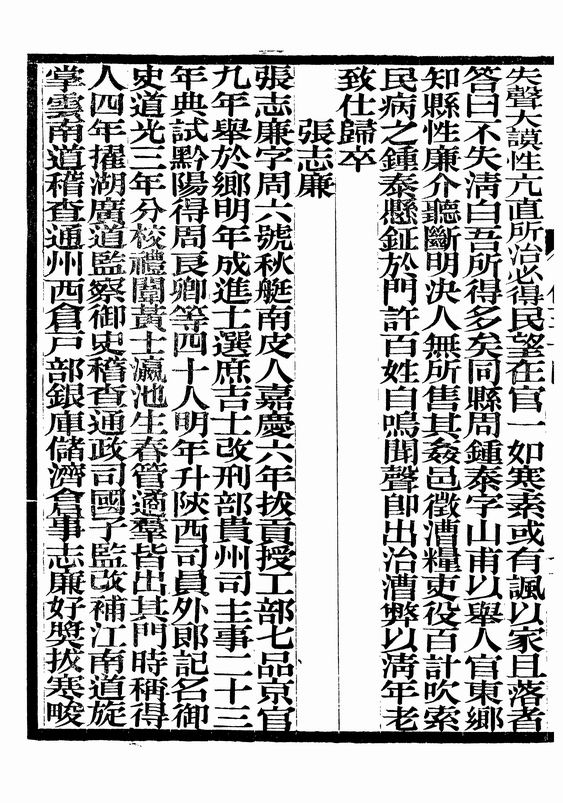 失聲大讀性亢直所治必得民望在官一如寒素或有諷以家且落者
答曰不失淸白吾所得多矣同縣周鍾泰字山甫以舉人官東鄉
知縣性廉介聽斷明決人無所售其姦邑徵漕糧吏役百計吹索
民病之鍾泰懸鉦於門許百姓自鳴聞聲卽出治漕弊以淸年老
致仕歸卒
張志廉
張志廉字周六號秋艇南皮人嘉慶六年拔貢授工部七品京官
九年舉於鄉明年成進士選庶吉士改刑部貴州司主事二十三
年典試黔陽得周辰卿等四十人明年升陝西司員外郎記名御
史道光三年分校禮闈黃士瀛池生春管遹羣皆出其門時稱得
人四年擢湖廣道監察御史稽查通政司國子監改補江南道旋
掌雲南道稽查通州西倉戸部銀庫儲濟倉事志廉好獎拔寒畯